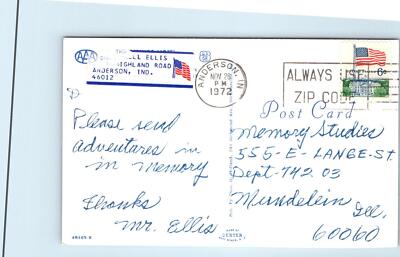 AAA
ELL ELLIS
HIGHLAND ROAD
ANDERSON, IND.
46012
ANDERSON, IN
NOV 28
PM
1972
ALWAYS USE
ZIP CODE
6¢
Post Card
Please send
adventures in
in memory
Thanks
Mr. Ellis
Memory Studies
555-E-LANGE-ST
Dept-742 03
Mundelein
Ill.
60060